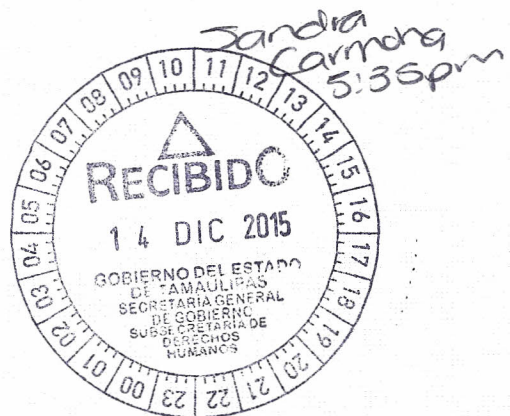 Sandra
Carmona
5:35pm
00 01 02 03 04 05 06 07 08 09 10 11 12 13 14 15 16 17 18 19 20 21 22 23
RECIBIDO
14 DIC 2015
GOBIERNO DEL ESTADO
DE TAMAULIPAS
SECRETARÍA GENERAL
DE GOBIERNO
SUBSECRETARÍA DE
DERECHOS
HUMANOS